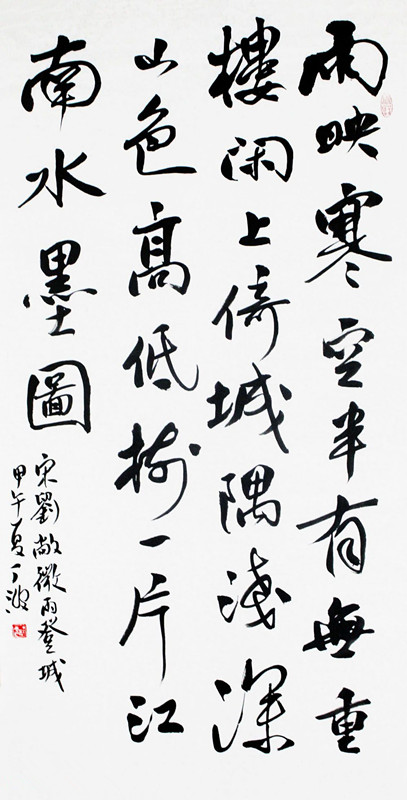 雨映寒空半有無重
樓閑上倚城隅淺深
山色高低樹一片江
南水墨圖
宋劉敞微雨登城
甲午夏